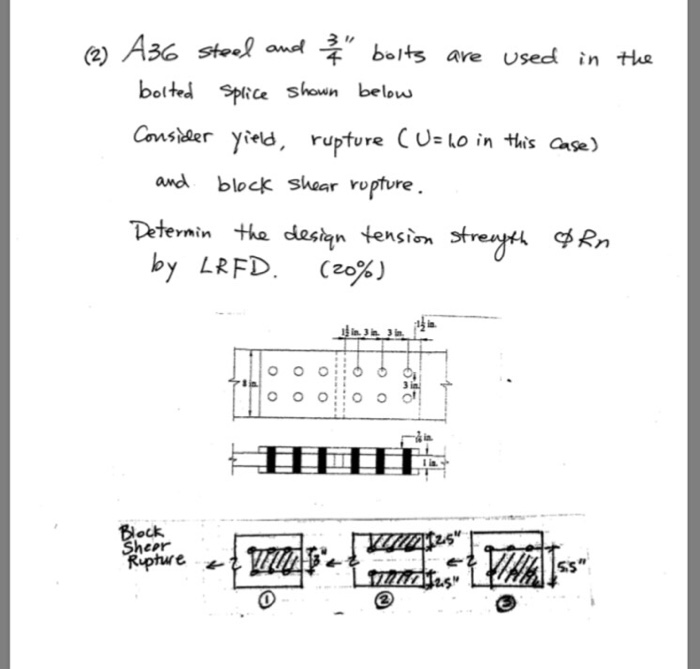 (2) A36 steel and 3/4" bolts are used in the
bolted splice shown below
Consider yield, rupture (U=1.0 in this case)
and block shear rupture.
Determin the design tension strength φRn
by LRFD. (20%)
1½ in. 3 in. 3 in. 1½ in.
8 in.
3 in.
1 in.
Block
Shear
Rupture
3"
2.5"
2.5"
5.5"
① ② ③